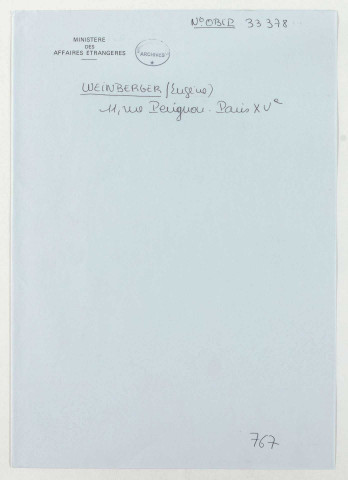 N° OBIP 33 378
MINISTERE
DES
AFFAIRES ETRANGERES
ARCHIVES
WEINBERGER (Eugène)
11, rue Perignon. Paris XVe
767